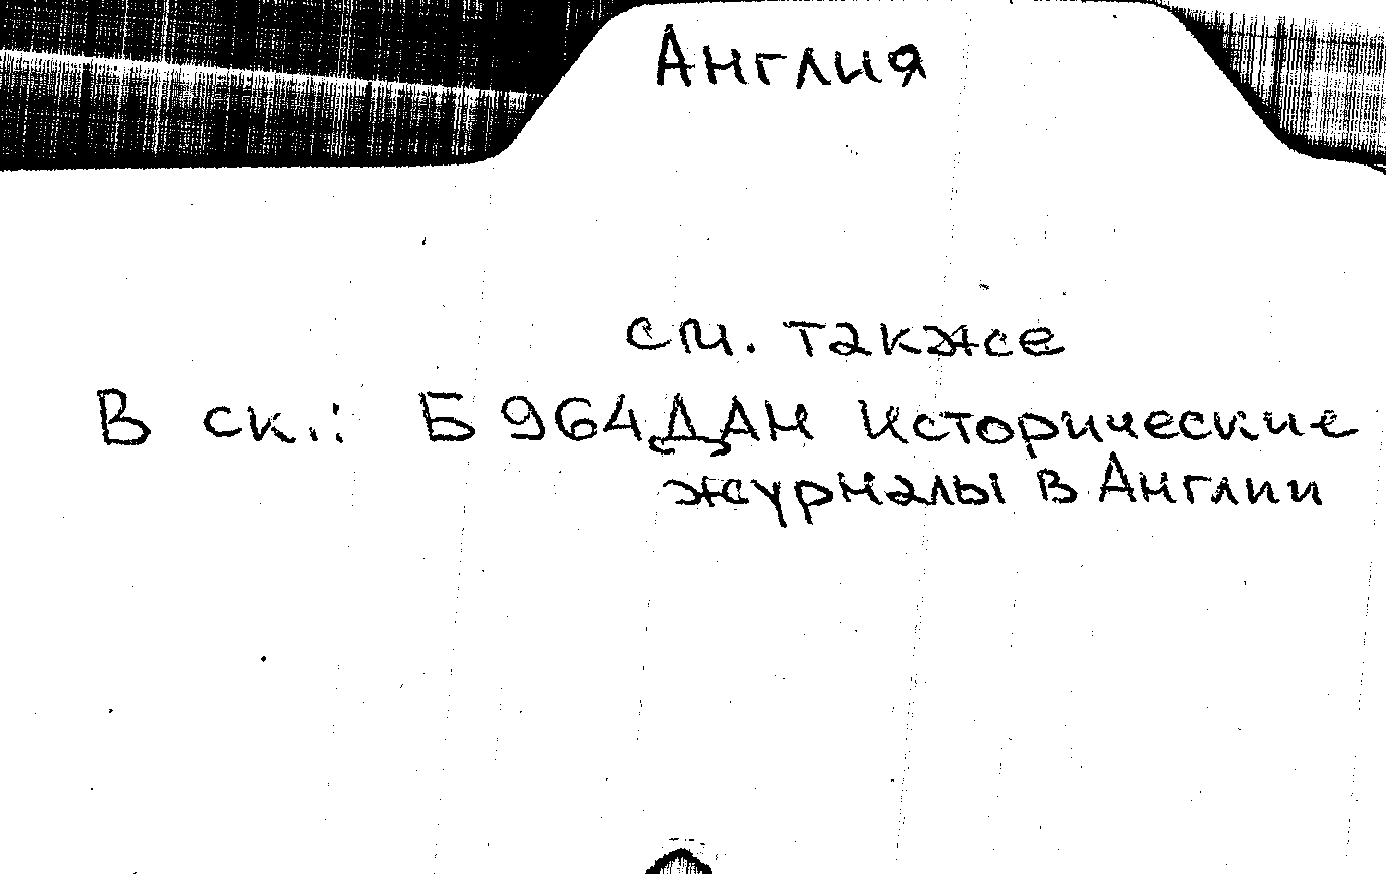 Англия
см. также
В ск.: Б964ДАН Исторические
журналы в Англии